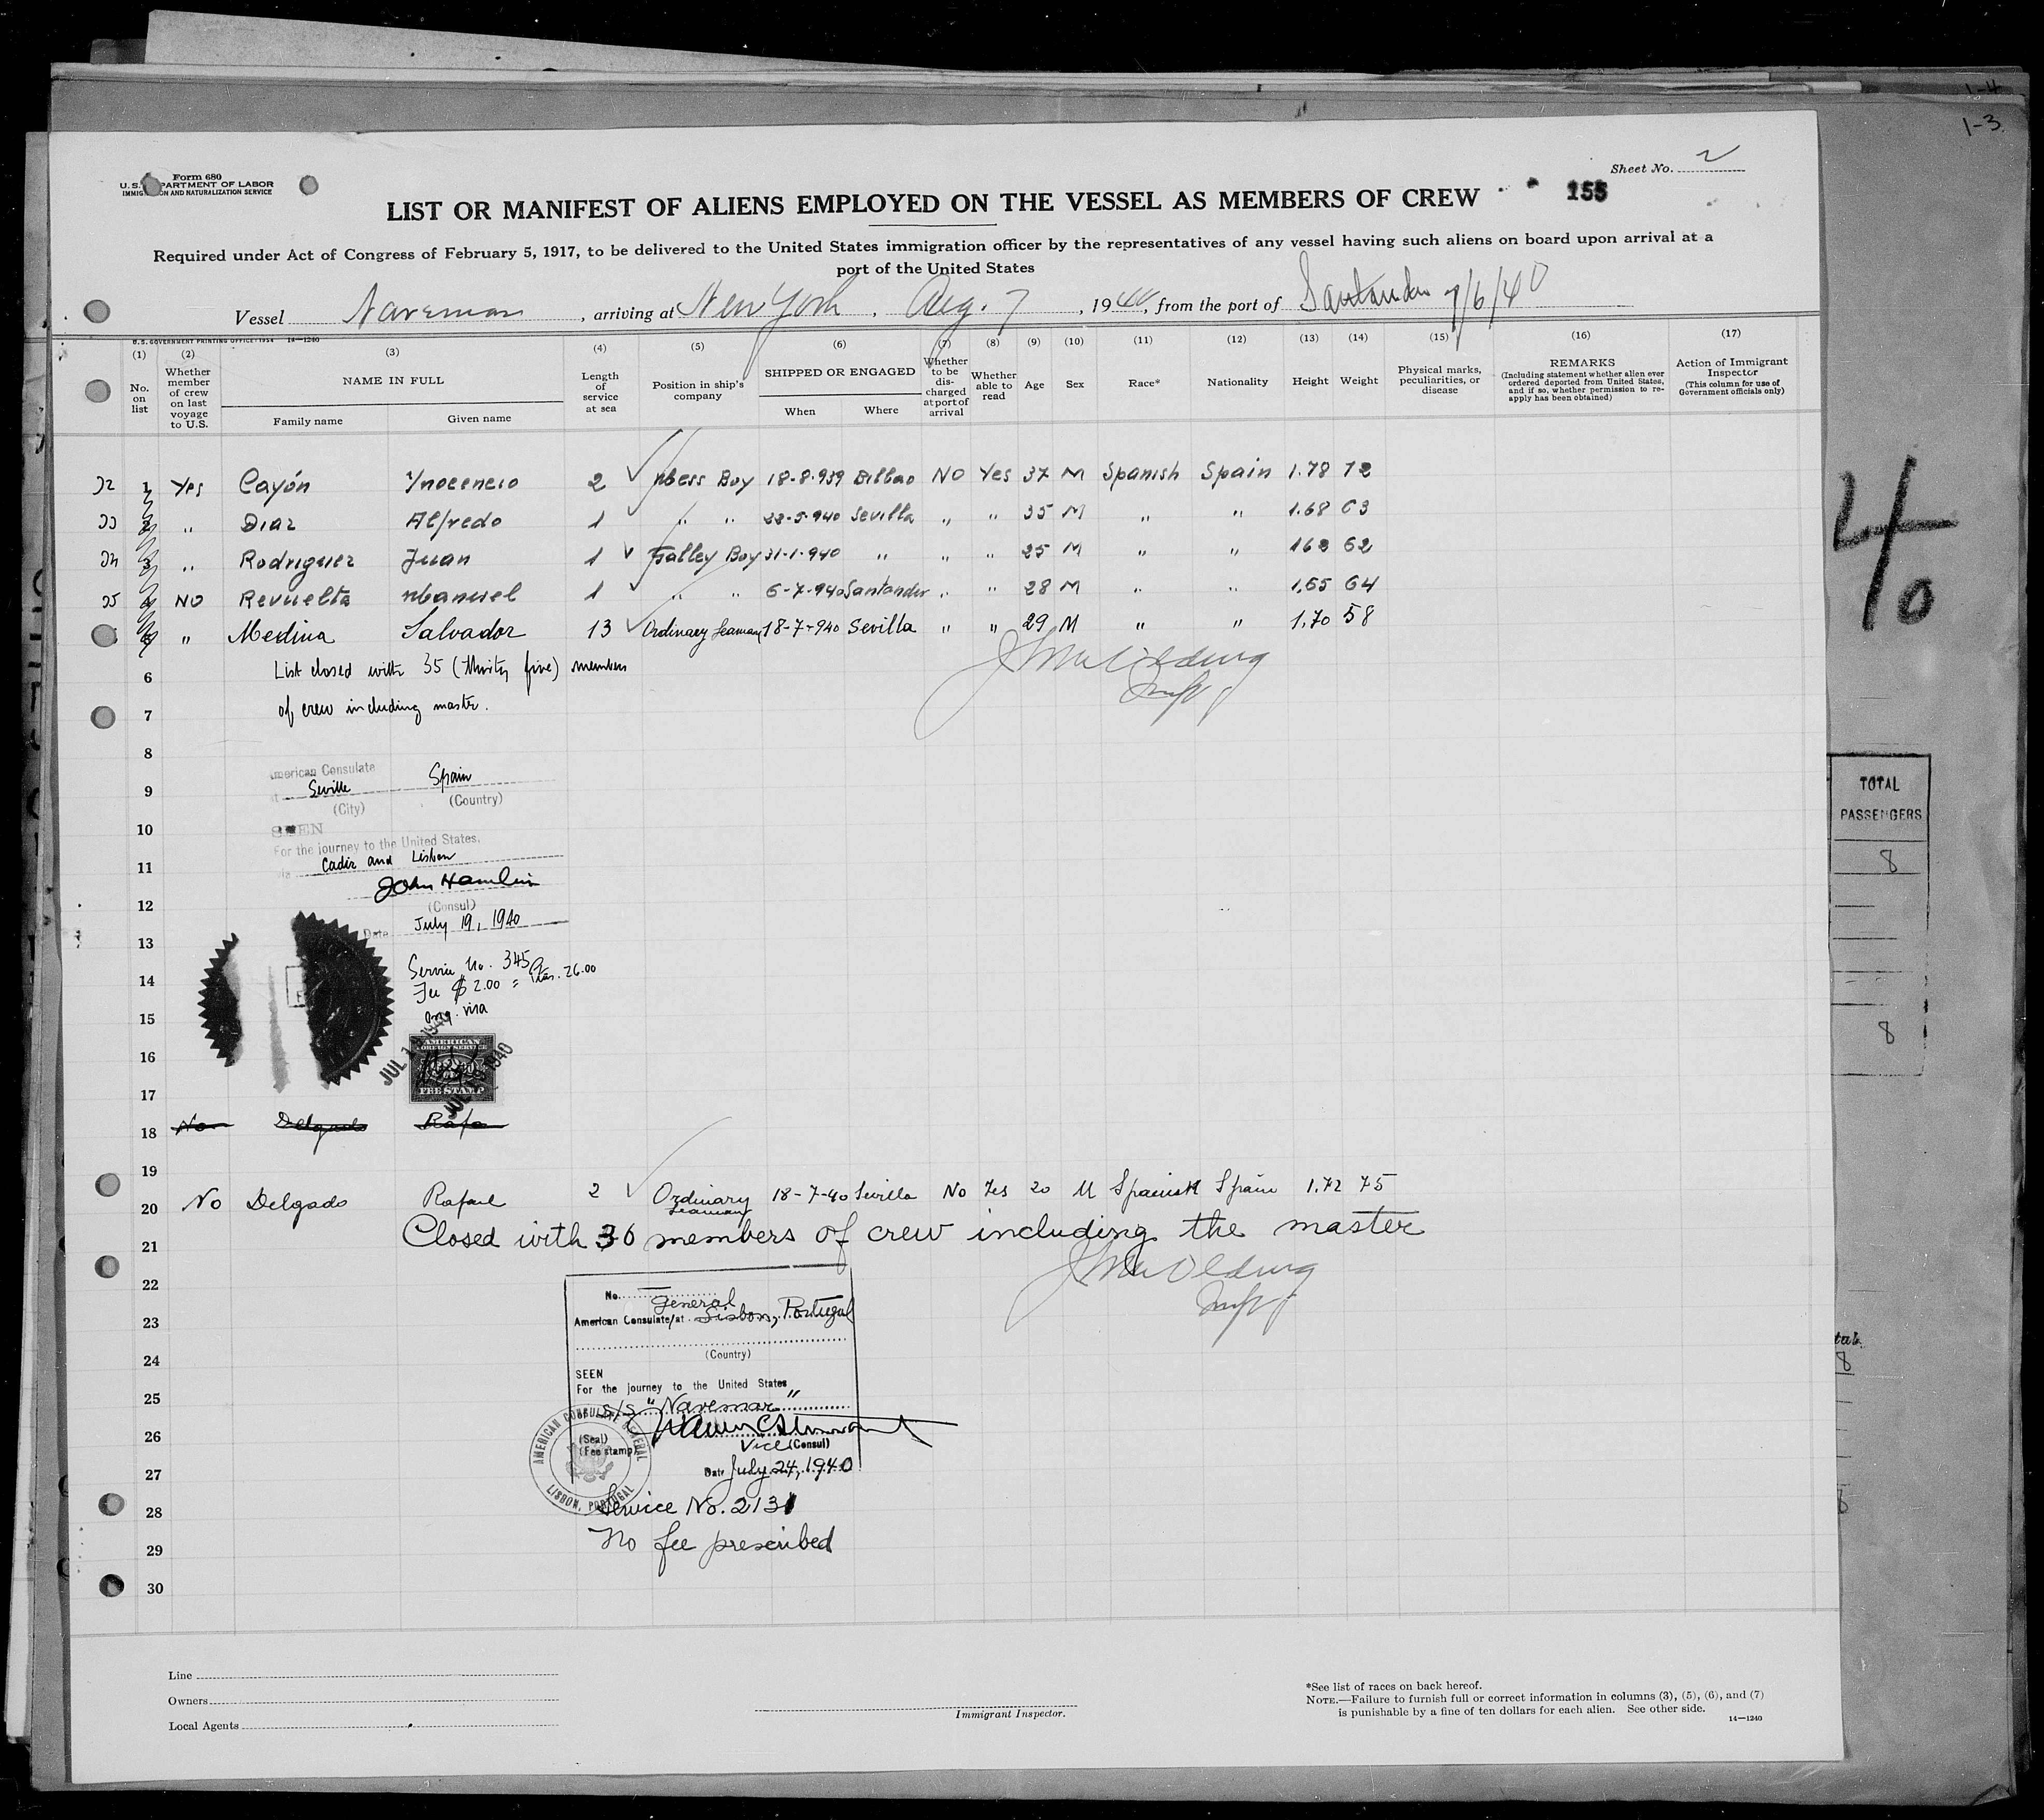 1-4
1-3
Form 680
U.S. DEPARTMENT OF LABOR
IMMIGRATION AND NATURALIZATION SERVICE
Sheet No. 2
LIST OR MANIFEST OF ALIENS EMPLOYED ON THE VESSEL AS MEMBERS OF CREW
155
Required under Act of Congress of February 5, 1917, to be delivered to the United States immigration officer by the representatives of any vessel having such aliens on board upon arrival at a
port of the United States
Vessel Navemar, arriving at New York, Aug. 7, 1940, from the port of Santander 7/6/40
U.S. GOVERNMENT PRINTING OFFICE: 1934 14-1240
(1) (2) (3) (4) (5) (6) (7) (8) (9) (10) (11) (12) (13) (14) (15) (16) (17)
No. on list
Whether member of crew on last voyage to U.S.
NAME IN FULL
Family name Given name
Length of service at sea
Position in ship's company
SHIPPED OR ENGAGED
When Where
Whether to be discharged at port of arrival
Whether able to read
Age Sex Race* Nationality Height Weight
Physical marks, peculiarities, or disease
REMARKS
(Including statement whether alien ever ordered deported from United States, and if so, whether permission to reapply has been obtained)
Action of Immigrant Inspector
(This column for use of Government officials only)
32 1 Yes Cayón Ynocencio 2 Mess Boy 18-8-939 Bilbao NO Yes 37 M Spanish Spain 1.78 72
33 2 " Diaz Alfredo 1 " " 22-5-940 Sevilla " " 35 M " " 1.68 63
34 3 " Rodriguez Juan 1 Galley Boy 31-1-940 " " " 25 M " " 162 62
35 4 NO Revuelta Manuel 1 " " 6-7-940 Santander " " 28 M " " 1,65 64
5 " Medina Salvador 13 Ordinary Seaman 18-7-940 Sevilla " " 29 M " " 1,70 58
List closed with 35 (thirty five) members
6
of crew including master.
7
8
American Consulate
9
at Seville Spain
(City) (Country)
10
SEEN
For the journey to the United States.
11
via Cadiz and Lisbon
John Hamlin
12
(Consul)
Date July 19, 1940
13
Service No. 345
14
Fee $2.00 = Ptas. 26.00
15
Orig. visa
JUL 1 1940
16
AMERICAN
FOREIGN SERVICE
FEE STAMP
17
18 No Delgado Rafa
19
20 No Delgado Rafael 2 Ordinary Seaman 18-7-40 Sevilla No Yes 20 M Spanish Spain 1.72 75
21 Closed with 36 members of crew including the master
22
No.
General
23
American Consulate/at Lisbon, Portugal
24
(Country)
SEEN
25
For the journey to the United States
S/S "Navemar"
26
(Seal)
(Fee stamp)
Vice (Consul)
27
Date July 24, 1940
AMERICAN CONSULATE GENERAL
LISBON, PORTUGAL
28 Service No. 2131
29 No fee prescribed
30
Line
Owners
Local Agents
Immigrant Inspector.
*See list of races on back hereof.
NOTE.—Failure to furnish full or correct information in columns (3), (5), (6), and (7)
is punishable by a fine of ten dollars for each alien. See other side.
14-1240
TOTAL
PASSENGERS
8
8
8